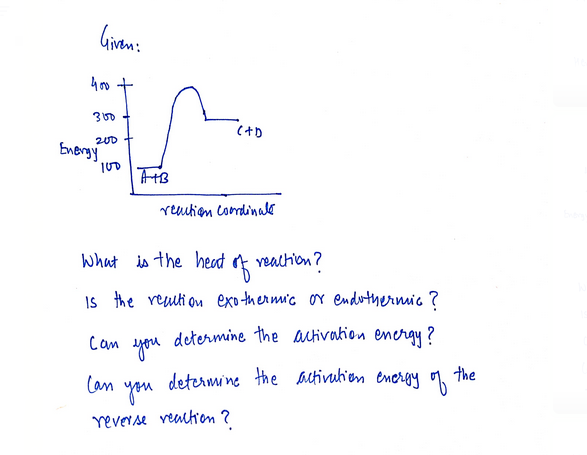 Given:
400
300
200
Energy
100
C+D
A+B
reaction coordinate
What is the heat of reaction?
Is the reaction exothermic or endothermic?
Can you determine the activation energy?
Can you determine the activation energy of the
reverse reaction?